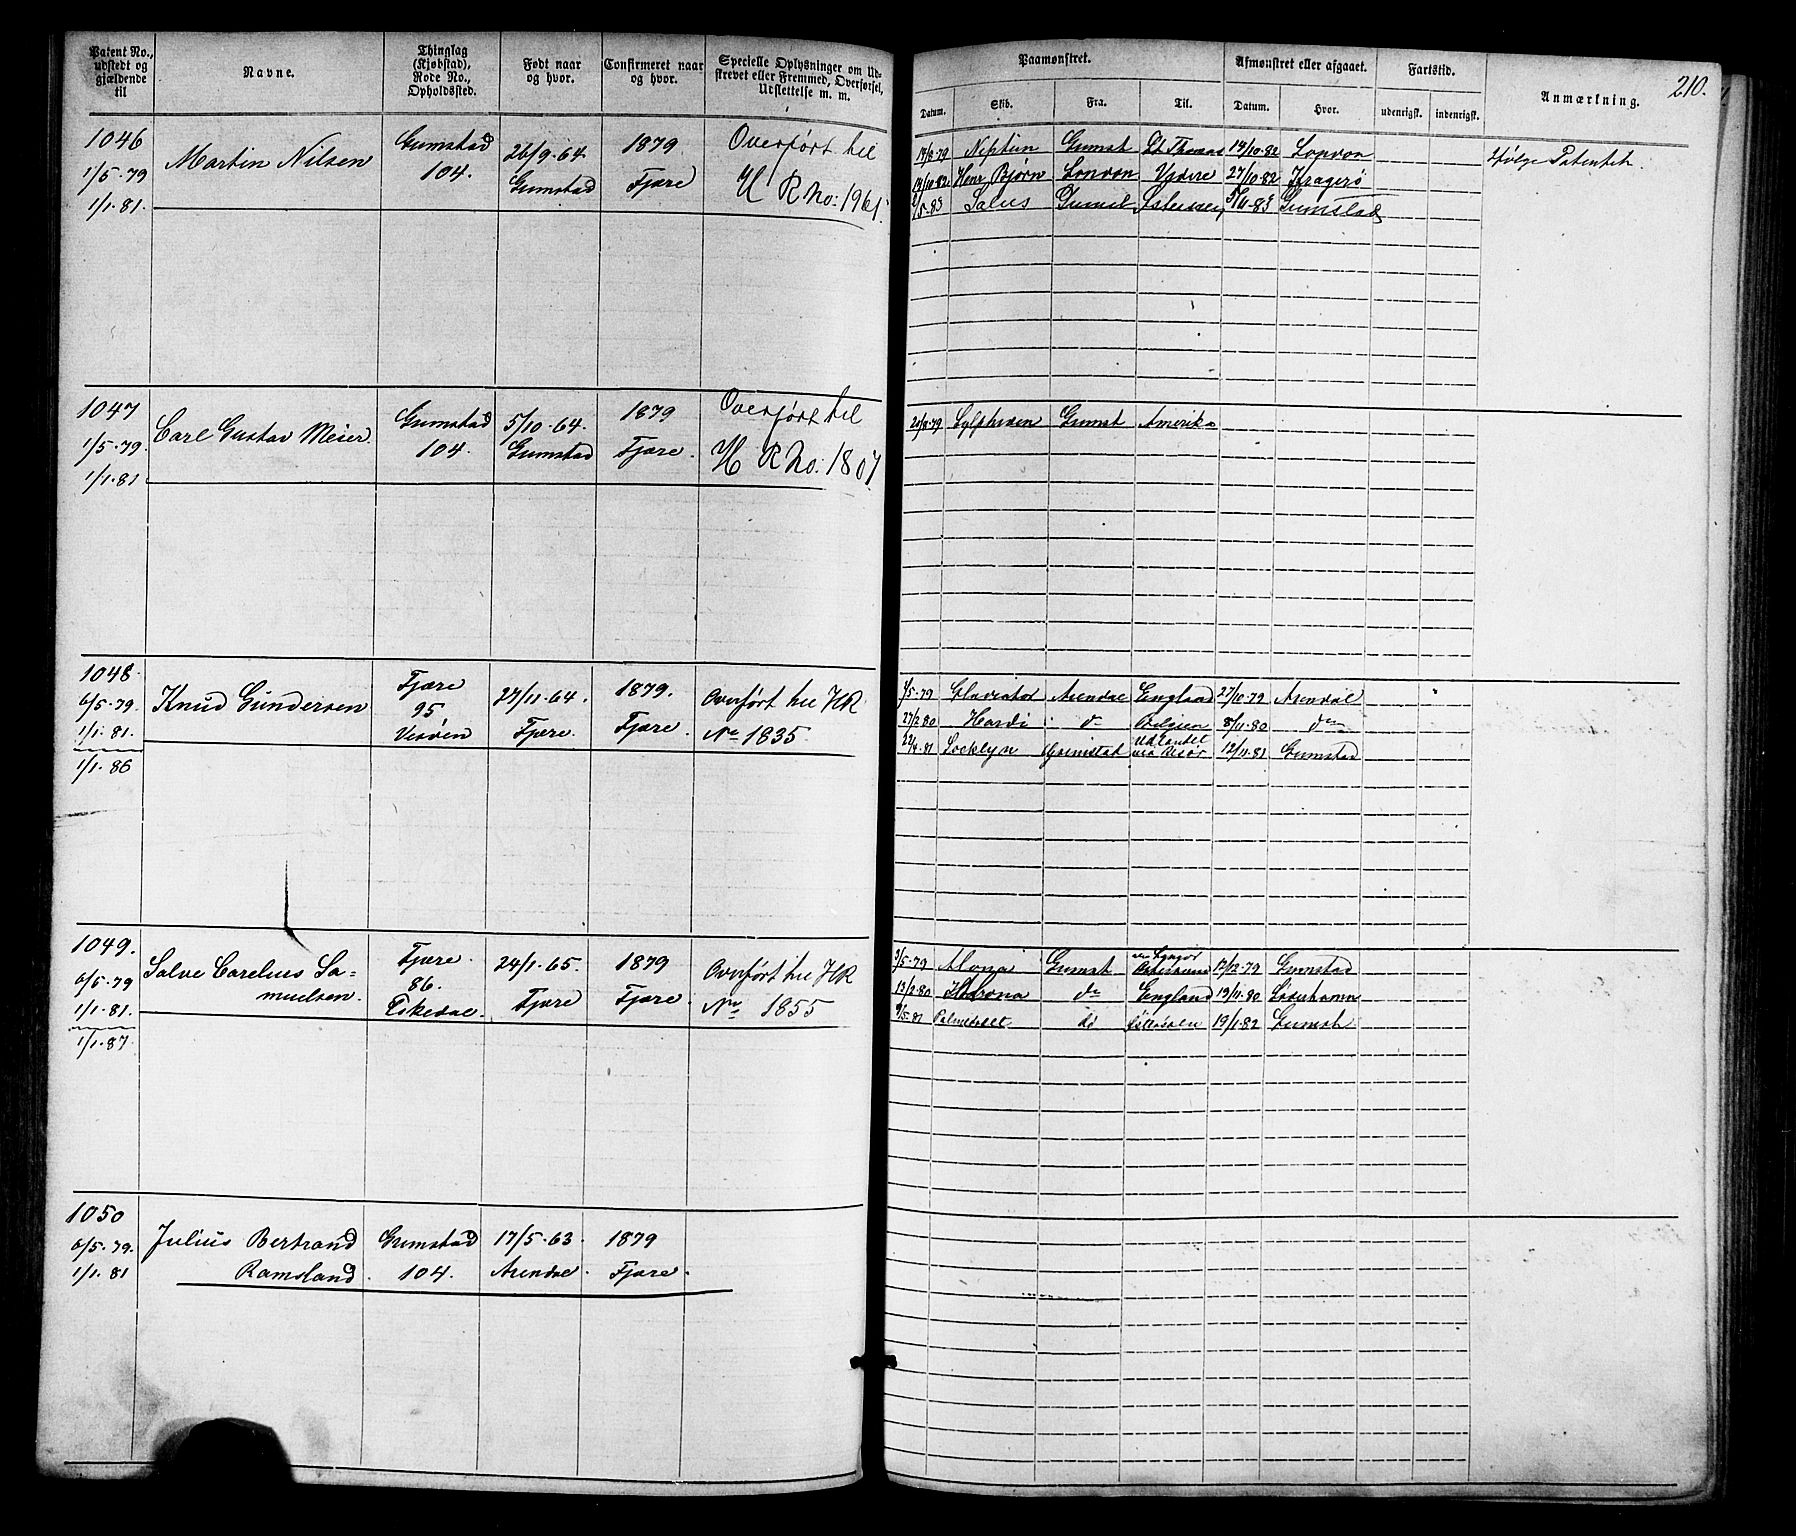 Patent No., udstedt og gjældende til
Navne.
Thinglag (Kjøbstad), Rode No., Opholdssted.
Født naar og hvor.
Confirmeret naar og hvor.
Specielle Oplysninger om Udstrevet eller Fremmed, Overførsel, Udslettelse m. m.
Paamønstret.
Afmønstret eller afgaaet.
Fartstid.
Anmærkning.
210.
Datum.
Skib.
Fra.
Til.
Datum.
Hvor.
udenrigsk.
indenrigsk.
1046
1/5-79
1/1.81.
Martin Nilsen
Grimstad
104.
26/9-64
Grimstad
1879
Fjære
Overført til
H R No: 1961.
14/8-79 Neptun Grimst St Thomas 14/10-82 London
ifølge Patentet
14/10-82 Henr Bjørn London 27/10-82 Kragerø
Salus Grimst Grimstad
1047
1/5-79
1/1.81
Carl Gustav Meier
Grimstad
104.
5/10-64
Grimstad
1879
Fjære.
Overført til
H R No: 1807.
Sylphiden Grimst Amerika
1048
6/5-79
1/1.81.
1/1.86
Knud Gundersen
Fjære
95
Vesøen
27/11-64.
Fjære.
1879.
Fjære.
Overført til HR
No 1835.
1/5-79 Gladiator Arendal England 27/10-79 Arendal
27/2 80 Hardi do Belgien 8/11-80 do
22/4-81 Locklyn Grimstad Udlandet 12/11-81 Grimstad
1049.
6/5-79
1/1.81.
1/1.87.
Salve Carelius Sa-
muelsen.
Fjære
86.
24/1-65.
Fjære
1879
Fjære.
Overført til HR
No 1855
Alona Grimst 12/12-79 Grimstad
13/2-80 Korona do England 19/11-80 Søderhamn
Palmedalet do Østersøen 19/1-82 Grimst
1050
6/5-79.
1/1.81
Julius Bertrand
Ramsland.
Grimstad
104.
17/5-63.
Arendal
1879
Fjære.